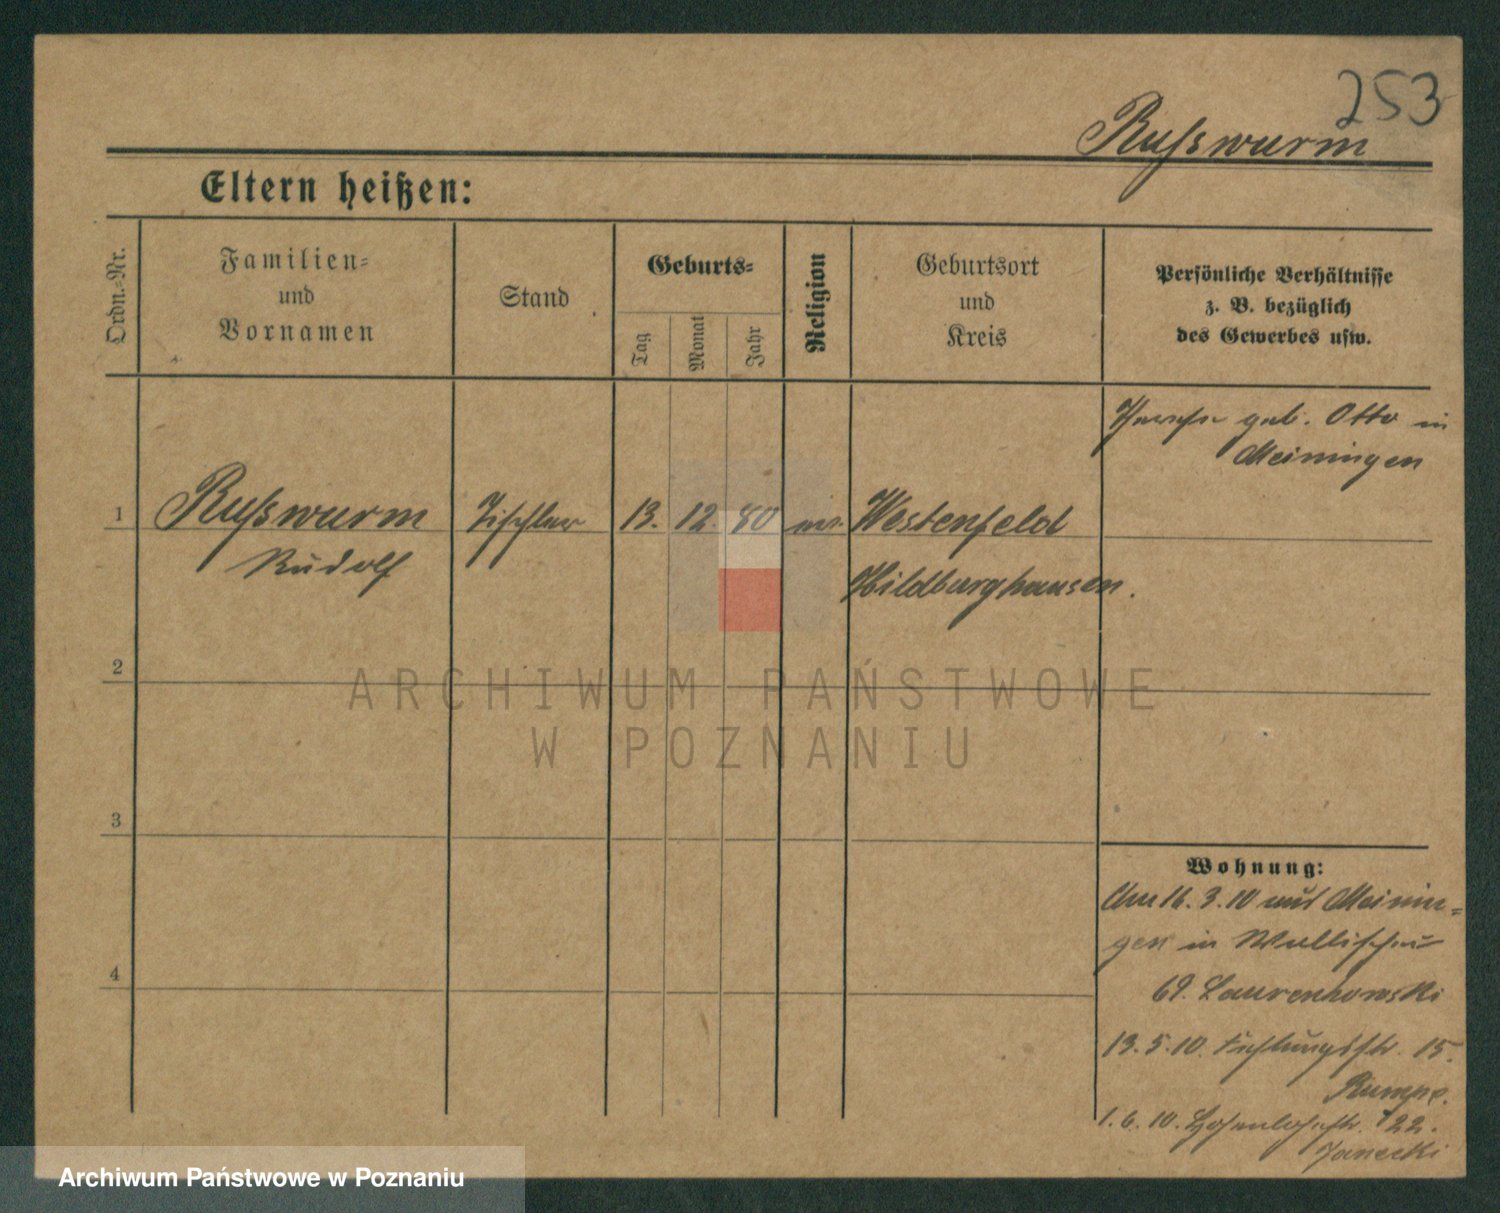 253
Rußwurm
Eltern heißen:
Ordn.-Nr.
Familien-
und
Vornamen
Stand
Geburts-
Tag
Monat
Jahr
Religion
Geburtsort
und
Kreis
Persönliche Verhältnisse
z. B. bezüglich
des Gewerbes usw.
geb. Otto in
Meiningen
1 Rußwurm Tischler 13. 12. 80 Westenfeld
Rudolf
Hildburghausen.
2
ARCHIWUM PAŃSTWOWE
W POZNANIU
3
4
Wohnung:
Am 16. 3. 10 aus Meinin-
gen in
69.
13. 5. 10. 15.
Rumpe.
1. 6. 10. 22.
Janecki
Archiwum Państwowe w Poznaniu